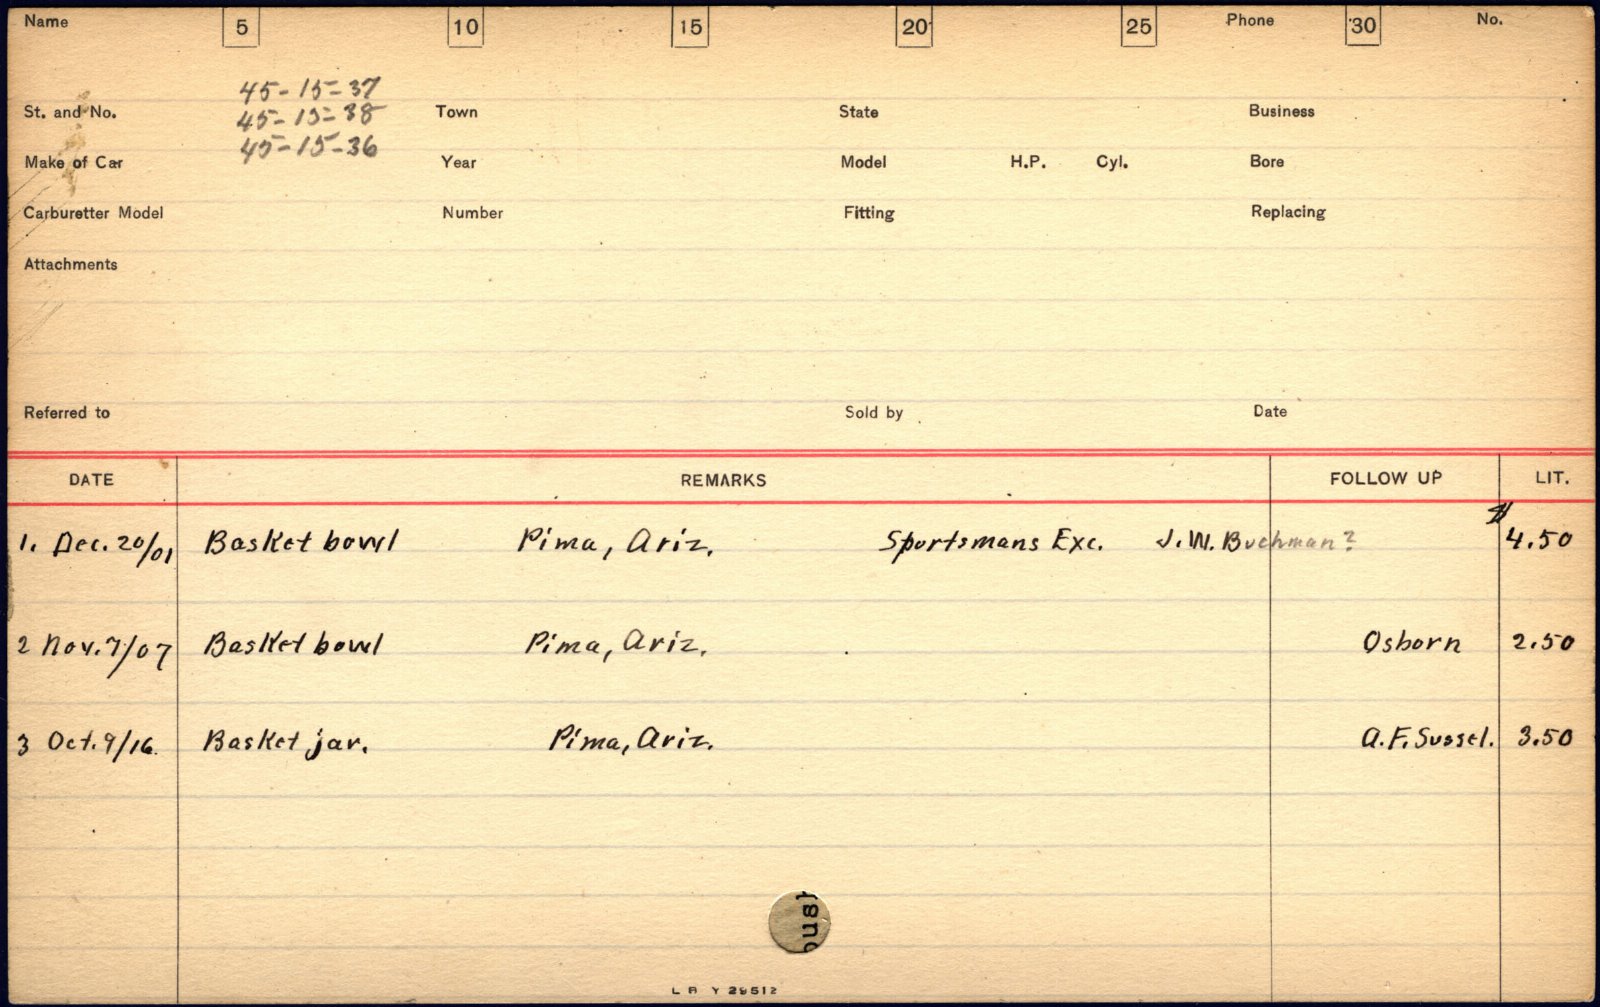 Name 5 10 15 20 25 Phone 30 No.
45-15-37
St. and No. 45-15-38 Town State Business
45-15-36
Make of Car Year Model H.P. Cyl. Bore
Carburetter Model Number Fitting Replacing
Attachments
Referred to Sold by Date
DATE REMARKS FOLLOW UP LIT.
1. Dec. 20/01 Basket bowl Pima, Ariz. Sportsmans Exc. J.W. Buchman? $4.50
2 Nov. 7/07 Basket bowl Pima, Ariz. Osborn 2.50
3 Oct. 9/16. Basket jar. Pima, Ariz. A.F. Sussel. 3.50
L B Y 29512